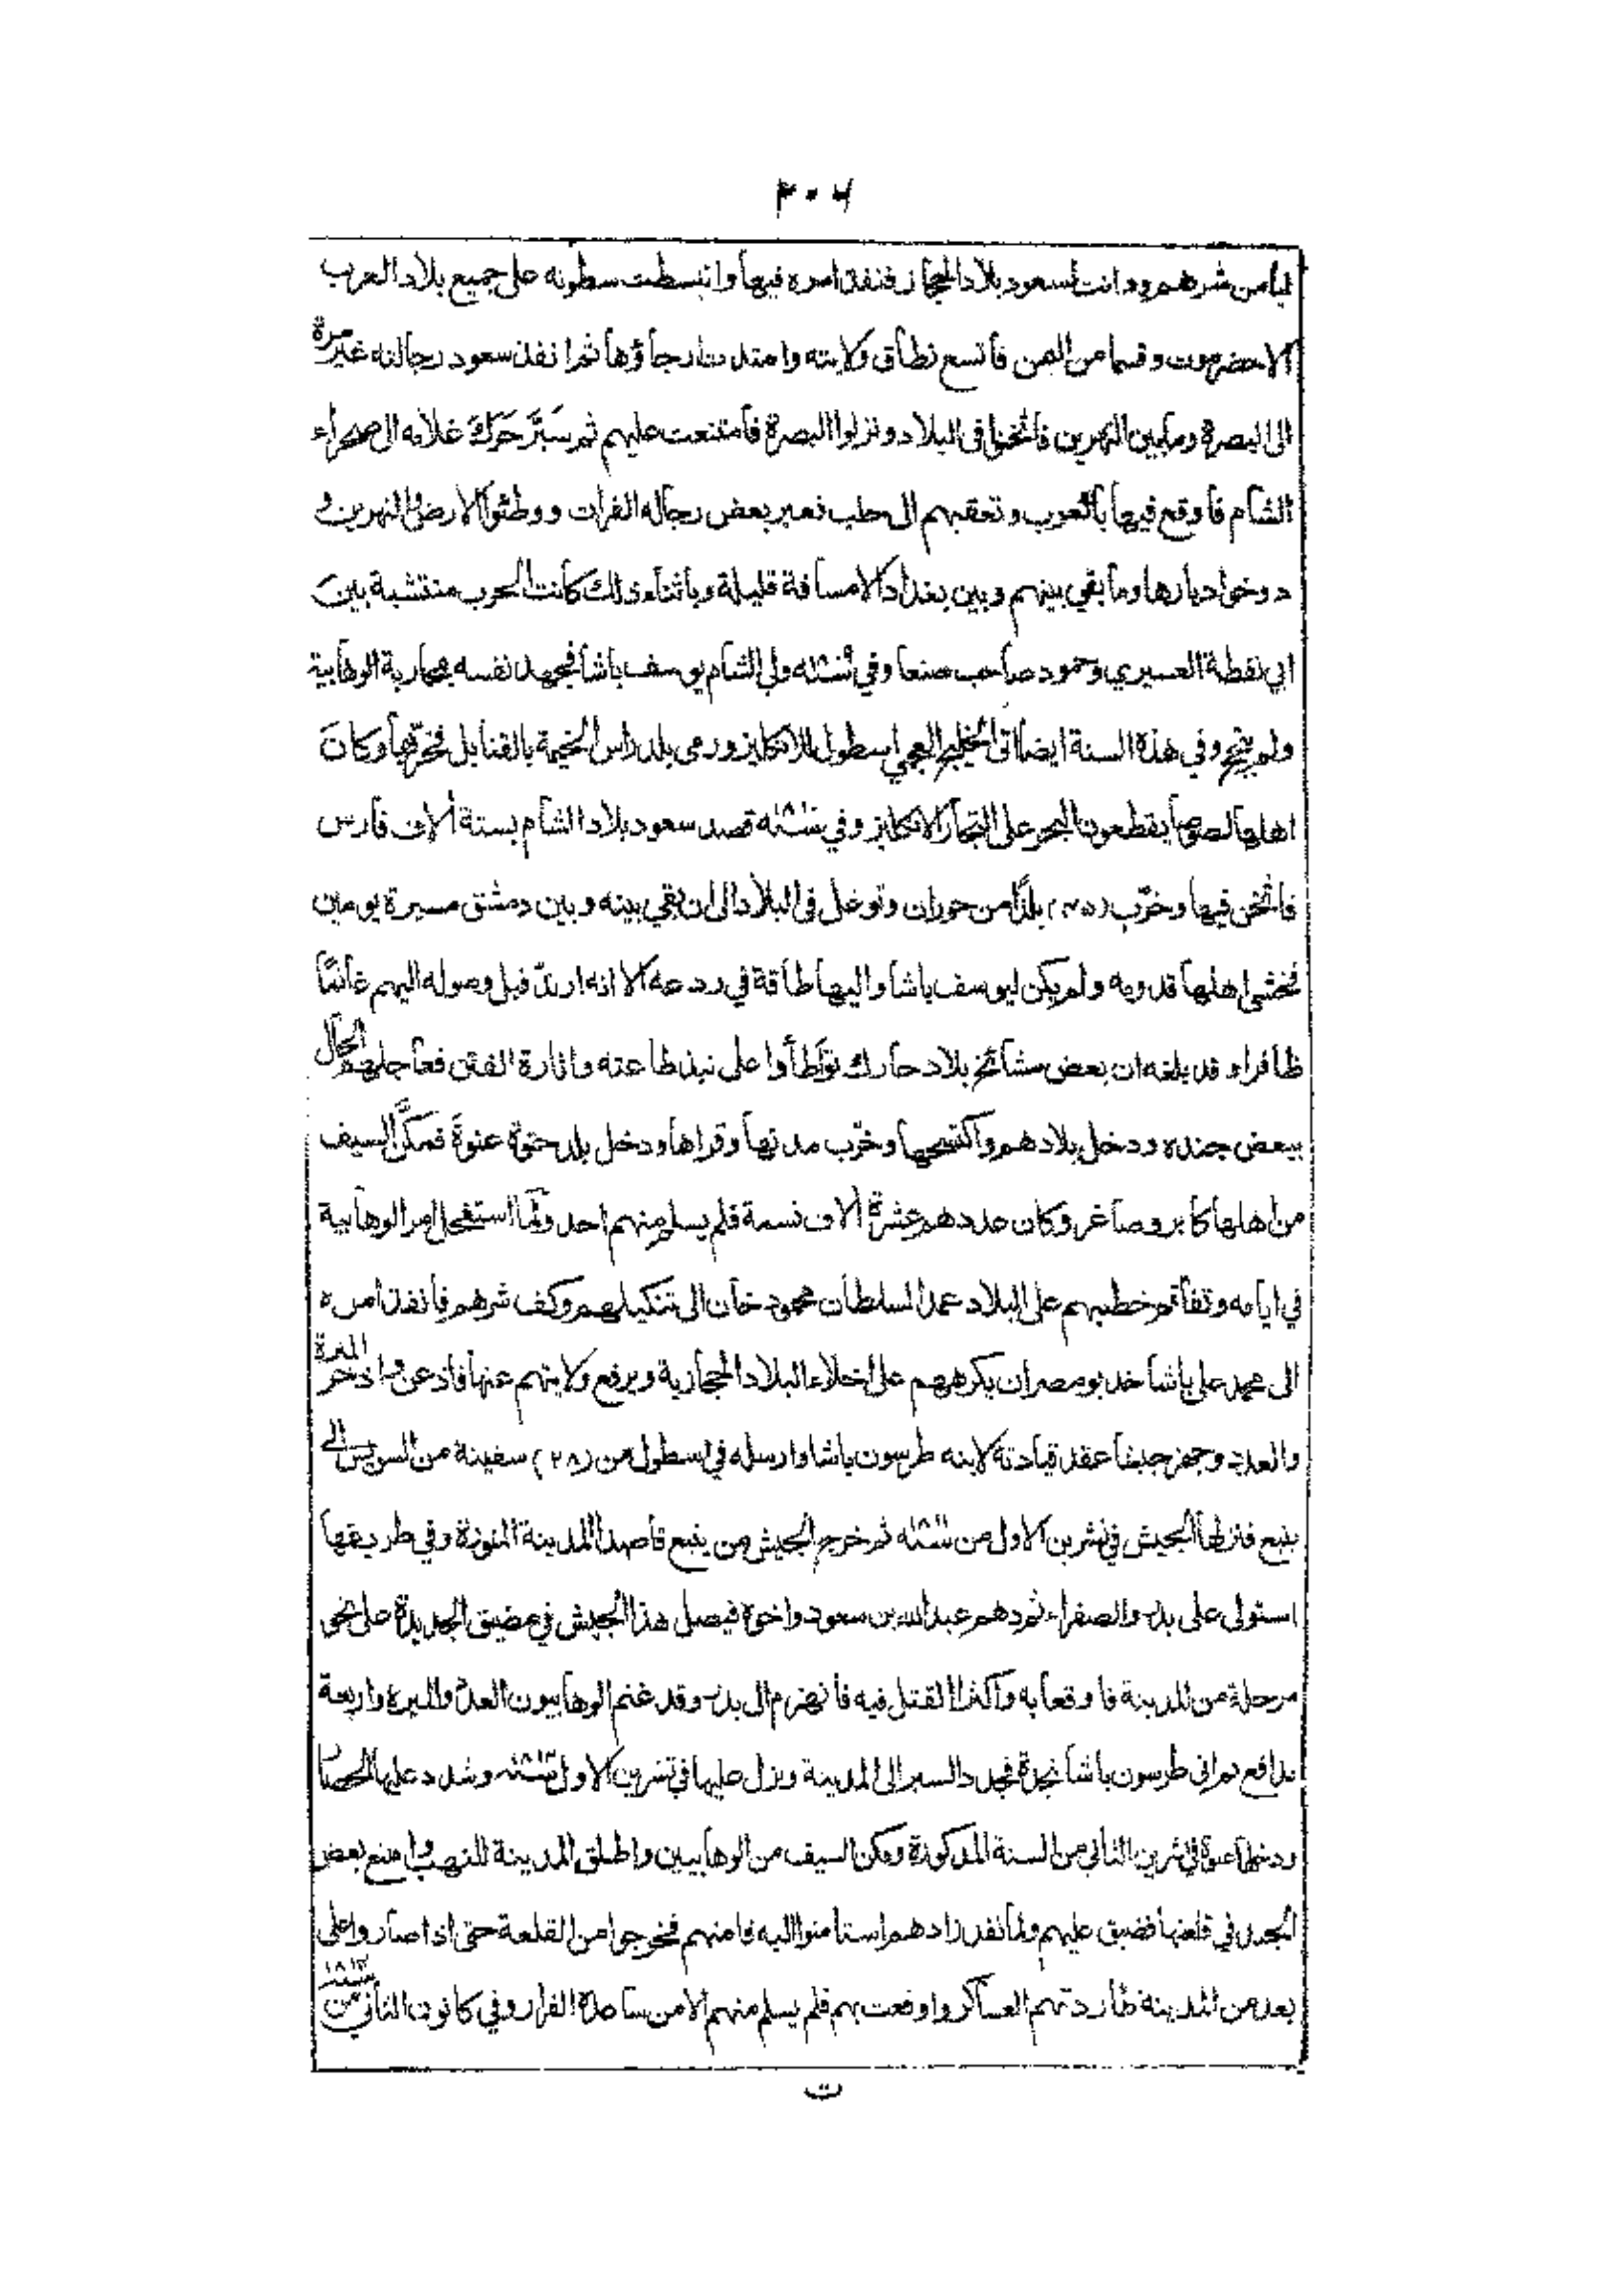 ٢٠٦
ليأمن شرهم ودانت لسعود بلاد الحجاز فنفذ امره فيها وانبسطت سطوته على جميع بلاد العرب
الاحضرموت وقسما من اليمن فأتسع نطاق ولايته وامتدت ارجاؤها ثم انفذ سعود رجالته غير مرة
الى البصرة ومابين النهرين فاثخنوا في البلاد ونزلوا البصرة فأمتنعت عليهم ثم سَيَّر حَرَكْ غلامه الى صحراء
الشام فأوقع فيها بالعرب وتعقبهم الى حلب فعبر بعض رجاله الفرات ووطئوا الارض النهرين و
دوخوا ديارها وما بقي بينهم وبين بغداد الا مسافة قليلة وبأثناء ذلك كانت الحرب منتشبة بين
ابي نقطة العسيري وحمود صاحب صنعا وفي سنة ولي الشام يوسف باشا فجهد نفسه بمحاربة الوهابية
ولم ينجح وفي هذه السنة ايضا اتى الخليج العجمي اسطول للانكليز ورمى بلد راس الخيمة بالقنابل فخرّبها وكان
اهلها لصوصاً يقطعون البحر على التجار الانكليز وفي سنة قصد سعود بلاد الشام بستة ألاف فارس
فاثخن فيها وخرّب (٣٥) بلدًا من حوران وتوغل في البلاد الى ان بقي بينه وبين دمشق مسيرة يومين
فخشي اهلها قدومه ولم يكن ليوسف باشا واليها طاقة في ردعه الا انه ارتدّ قبل وصوله اليهم غانمًا
ظافرا وقد بلغه ان بعض مشائخ بلاد حارك تَواطأوا على نبذ طاعته واثارة الفتن فعاجلهم الحال
ببعض جنده ودخل بلادهم واكتسحها وخرّب مدنها وقراها ودخل بلد حتوة عنوةً فمكّن السيف
من اهلها كابر وصاغر وكان عددهم عشرة الاف نسمة فلم يسلم منهم احد ولما استفحل امر الوهابية
في ايامه وتفاقم خطبهم على البلاد عمد السلطان محمود خان الى تنكيلهم وكف شرهم فأنفذ امره
الى محمد علي باشا خديو مصر ان يكرههم على اخلاء البلاد الحجازية ويرفع ولايتهم عنها فاذعن وادخر الميرة
والعدد وجهز جيشا عقد قيادته لابنه طرسون باشا وارسله في اسطول من (٢٨) سفينة من السويس الى
ينبع فنزلها الجيش في تشرين الاول من سنة ثم خرج الجيش من ينبع قاصدا المدينة المنورة وفي طريقها
استولى على بدر والصفراء ثم دهم عبد الله بن سعود واخوه فيصل هذا الجيش في مضيق الجديدة على نحو
مرحلة من المدينة فاوقعا به واكثرا القتل فيه فانهزم الى بدر وقد غنم الوهابيون العدد والميرة واربعة
مدافع ثم اتى طرسون باشا نجدة فجدد السير الى المدينة ونزل عليها في تشرين الاول سنة وشدد عليها الحصار
ودخلها عنوة في تشرين الثاني من السنة المذكورة ومكن السيف من الوهابيين واطلق المدينة للنهب وامتنع بعض
الجند في قلعتها فضيق عليهم ولما نفد زادهم استأمنوا اليه فامنهم فخرجوا من القلعة حتى اذا صاروا على
بعد من المدينة طاردتهم العساكر واوقعت بهم فلم يسلم منهم الا من ساعده الفرار وفي كانون الثاني من سنة ١٨١٣
ت